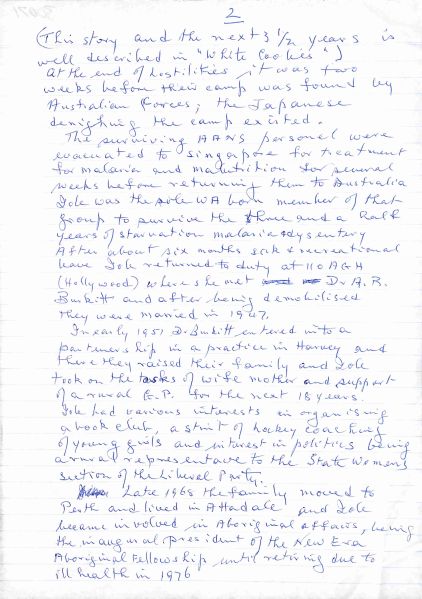 2
(This story and the next 3 1/2 years is
well described in "White Coolies")
At the end of hostilities, it was two
weeks before their camp was found by
Australian Forces; the Japanese
denighing the camp existed.
The surviving AANS personel were
evacuated to Singapore for treatment
for malaria and malutrition for several
weeks before returning them to Australia
Iole was the sole WA born member of that
group to survive the three and a half
years of starvation malaria & dysentery
After about six months sick & recreational
leave Iole returned to duty at 110 AGH
(Hollywood) where she met Dr A.B.
Burkitt and after being demobilised
they were married in 1947.
In early 1951 Dr Burkitt entered into a
partnership in a practice in Harvey and
there they raised their family and Iole
took on the tasks of wife mother and support
of a rural G.P. for the next 18 years.
Iole had various interests in organising
a book club, a stint of hockey coaching
of young girls and interest in politics being
a rural representave to the State Womens
Section of the Liberal Party.
Late 1968 the family moved to
Perth and lived in Attadale and Iole
became involved in Aboriginal affairs, being
the inaugural president of the New Era
Aboriginal Fellowship until retiring due to
ill health in 1976